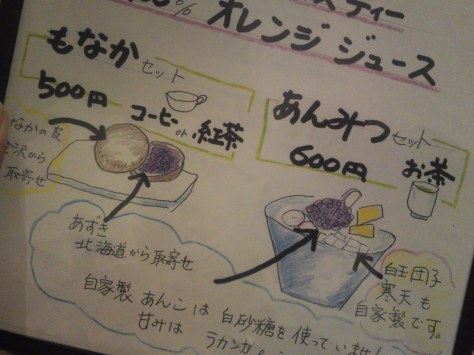 ティー
% オレンジ ジュース
もなかセット
500円
コーヒー or 紅茶
あんみつセット
600円
お茶
なかの皮
沢から
取寄せ
あずき
北海道から取寄せ
自家製 あんこは 白砂糖を使っていません
甘みは ラカンカ
白玉団子
寒天も
自家製です。